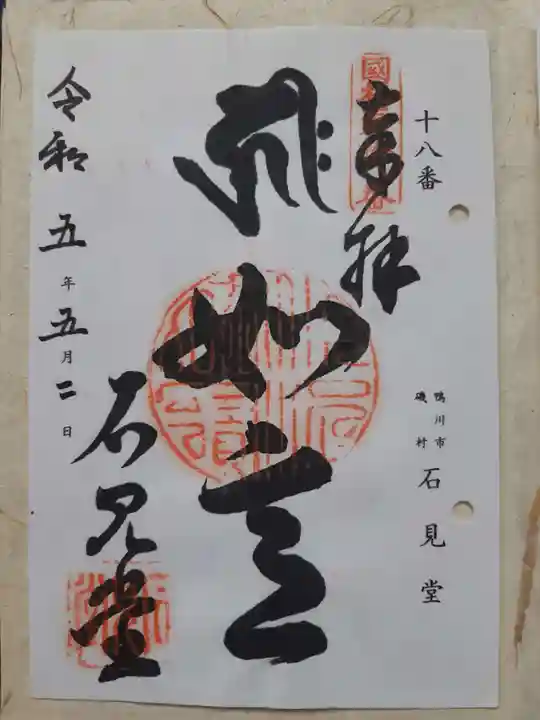 十八番
鴨川市
磯村
石見堂
奉拝
如意
石見堂
令和五年五月二日